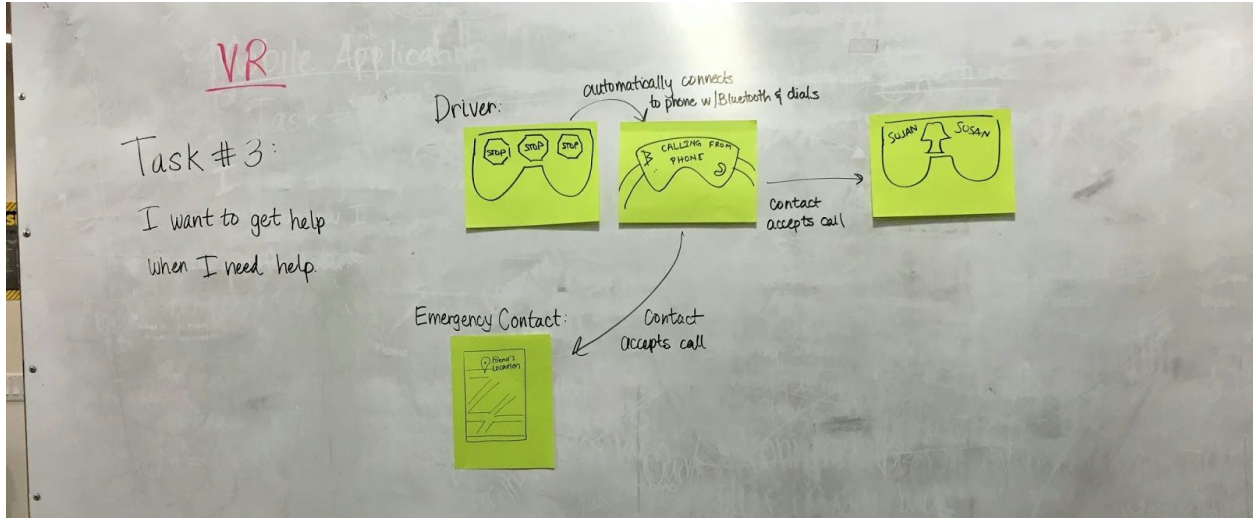 VR
Mobile Application
Task # 3:
I want to get help
when I need help.
Driver:
STOP STOP STOP
automatically connects
to phone w/Bluetooth & dials
CALLING FROM
PHONE
contact
accepts call
SUSAN SUSAN
Emergency Contact:
Contact
accepts call
Friend's
Location